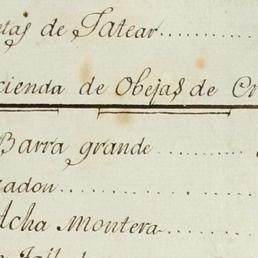 tas de Tatear..........
cienda de Obejas de Cr
Barra grande..........
adon..........
Acha Montera..........